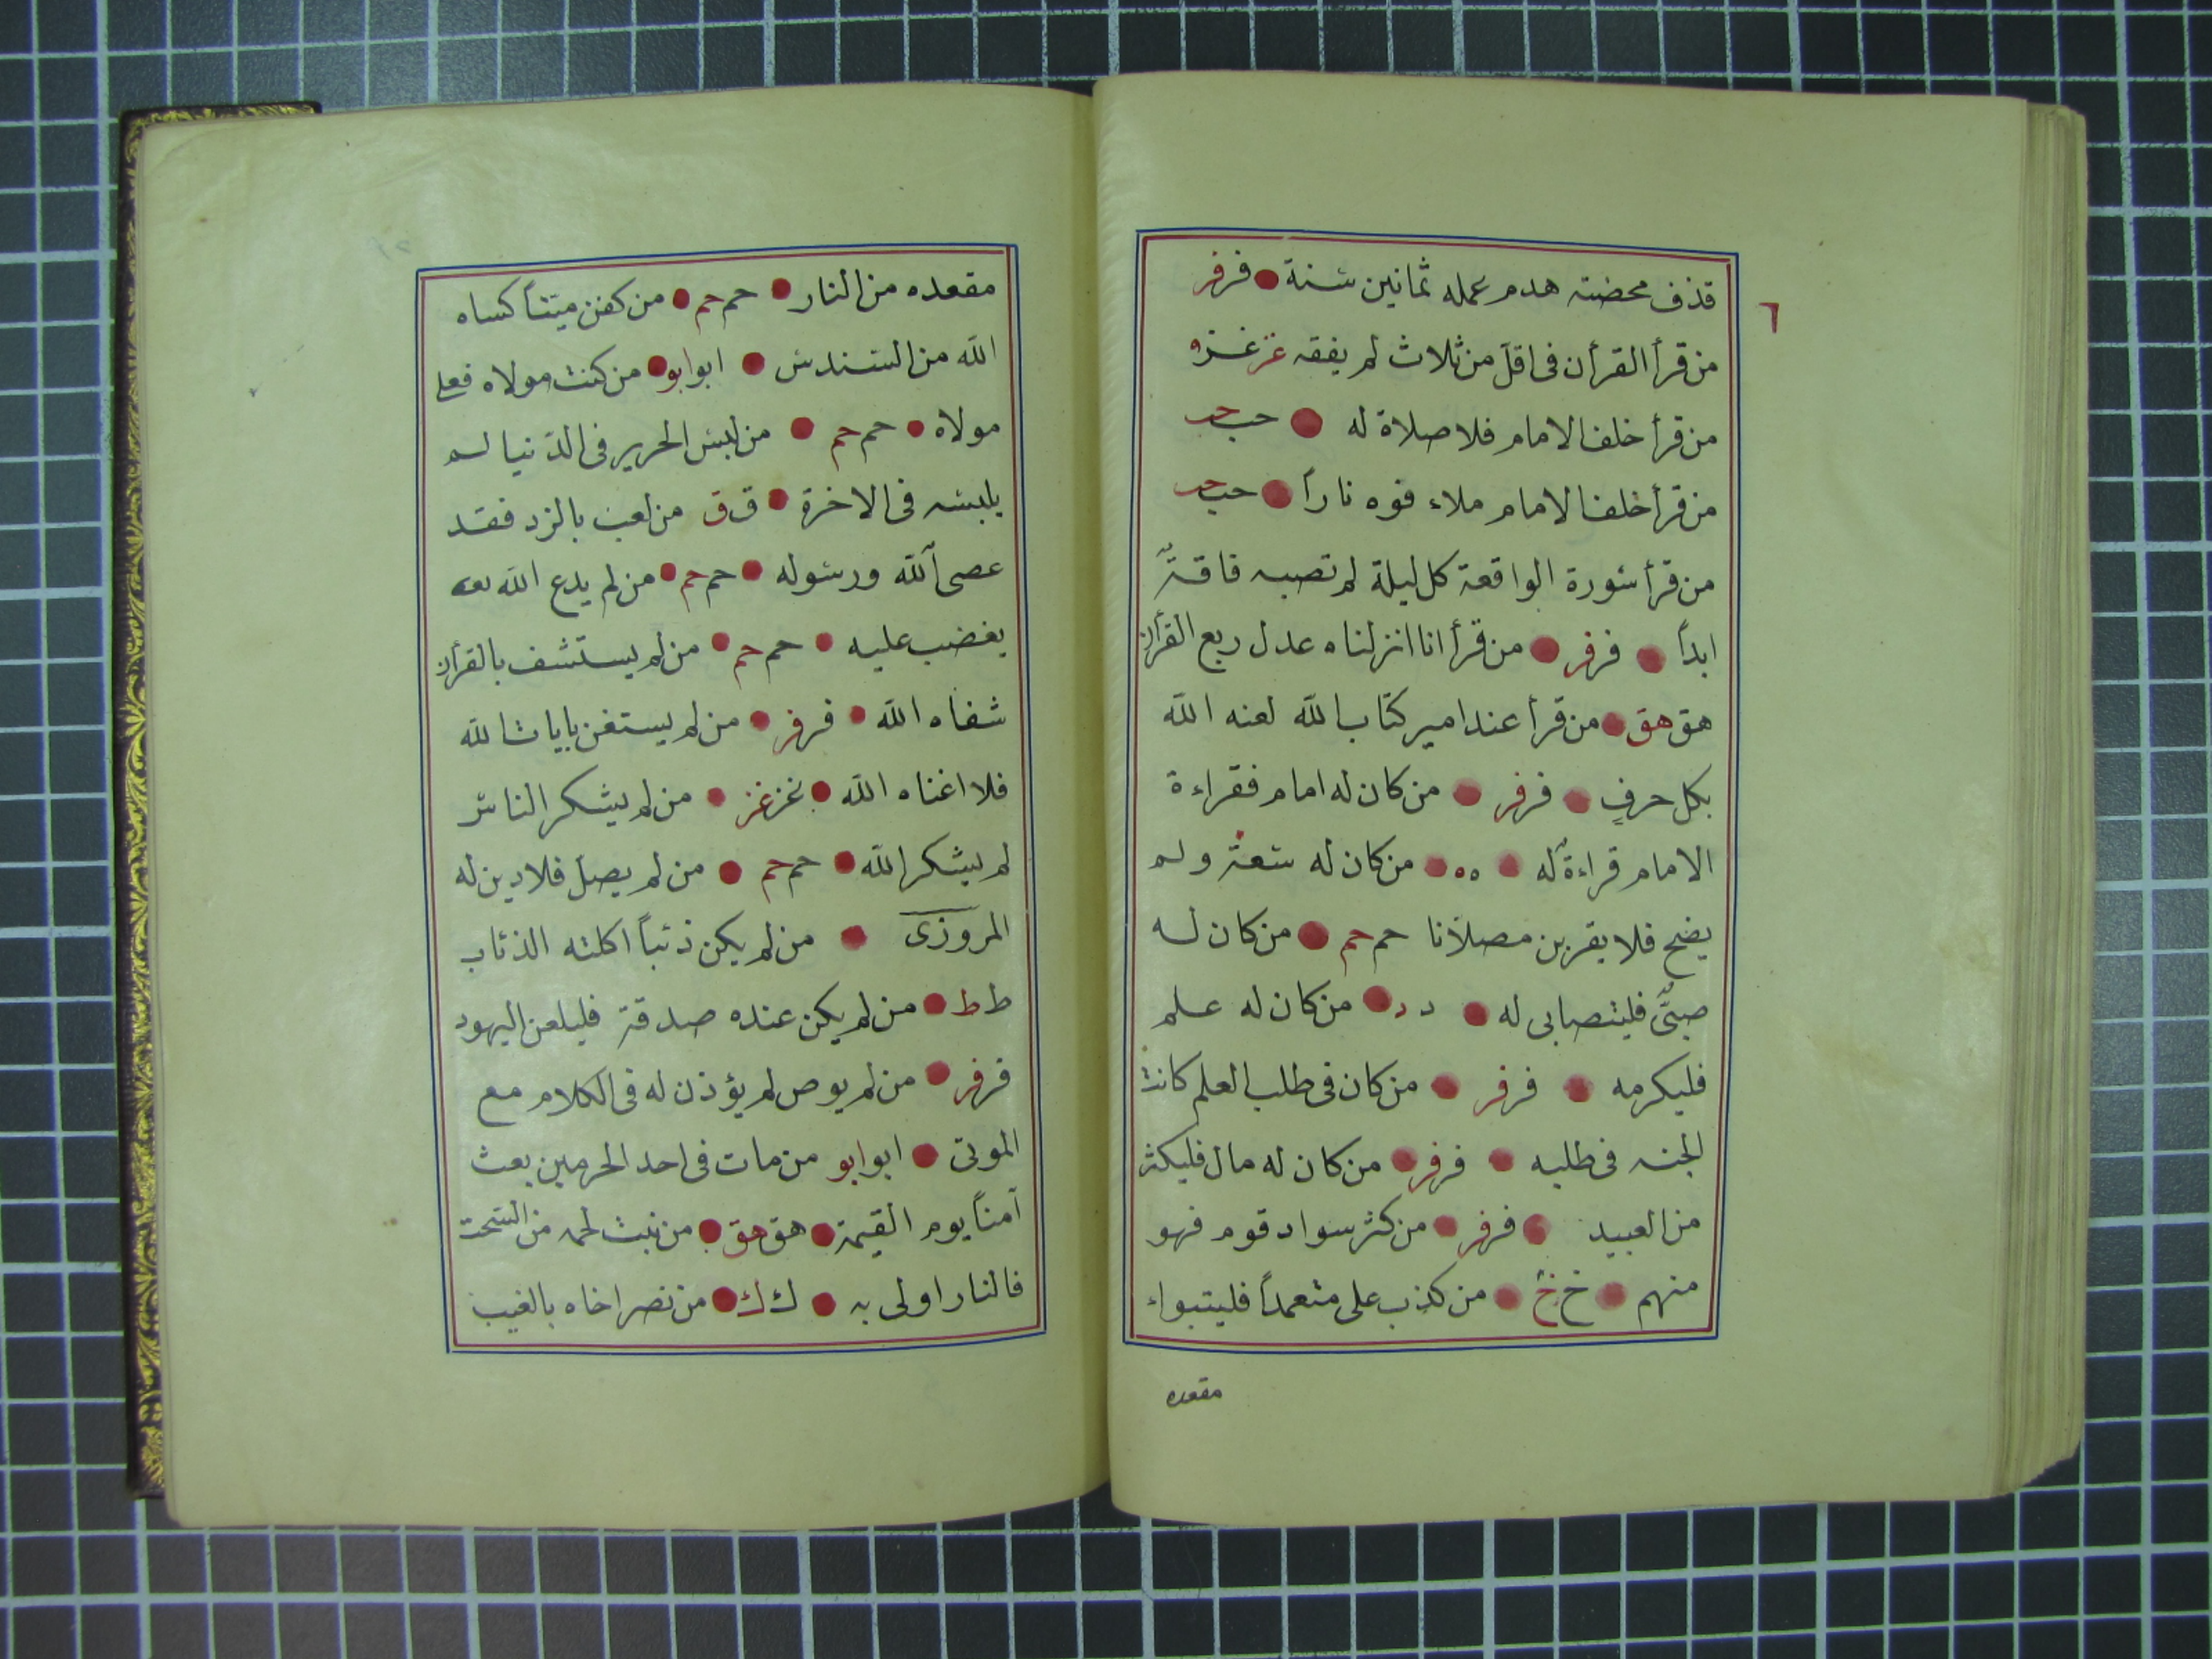 قذف محضنه هدم عمله ثمانين سنة فر فر
٦
من قرأ القرأن فى اقل من ثلاث لم يفقه غز غز
من قرأ خلف الامام فلا صلاة له حب حب
من قرأ خلف الامام ملاء فوه ناراً حب حب
من قرأ سورة الواقعة كل ليلة لم تصبه فاقة
ابداً فر فر من قرأ انا انزلناه عدل ربع القرأن
هق هق من قرأ عند امير كتاب الله لعنه الله
بكل حرفٍ فر فر من كان له امام فقراءة
الامام قراءةٌ له ه ه من كان له سعة ولم
يضح فلا يقربن مصلانا حم حم من كان له
صبىٌّ فليتصابى له د د من كان له علم
فليكرمه فر فر من كان فى طلب العلم كانت
الجنه فى طلبه فر فر من كان له مال فليكثر
من العبيد فر فر من كثر سواد قوم فهو
منهم خ خ من كذب على متعمداً فليتبواء
مقعده
مقعده من النار حم حم من كفن ميتاً كساه
الله من السندس ابو ابو من كنت مولاه فعلى
مولاه حم حم من لبس الحرير فى الدنيا لم
يلبسه فى الاخرة ق ق من لعب بالنرد فقد
عصى الله ورسوله حم حم من لم يدع الله
يغضب عليه حم حم من لم يستشف بالقرأن
شفاه الله فر فر من لم يستغن بايات الله
فلا اغناه الله غز غز من لم يشكر الناس
لم يشكر الله حم حم من لم يصل فلا دين له
المروزى من لم يكن ذئباً اكلته الذئاب
ط ط من لم يكن عنده صدقة فليلعن اليهود
فر فر من لم يوص لم يؤذن له فى الكلام مع
الموتى ابو ابو من مات فى احد الحرمين بعث
آمناً يوم القيمة هق هق من نبت لحمه من السحت
فالنار اولى به ك ك من نصر اخاه بالغيب